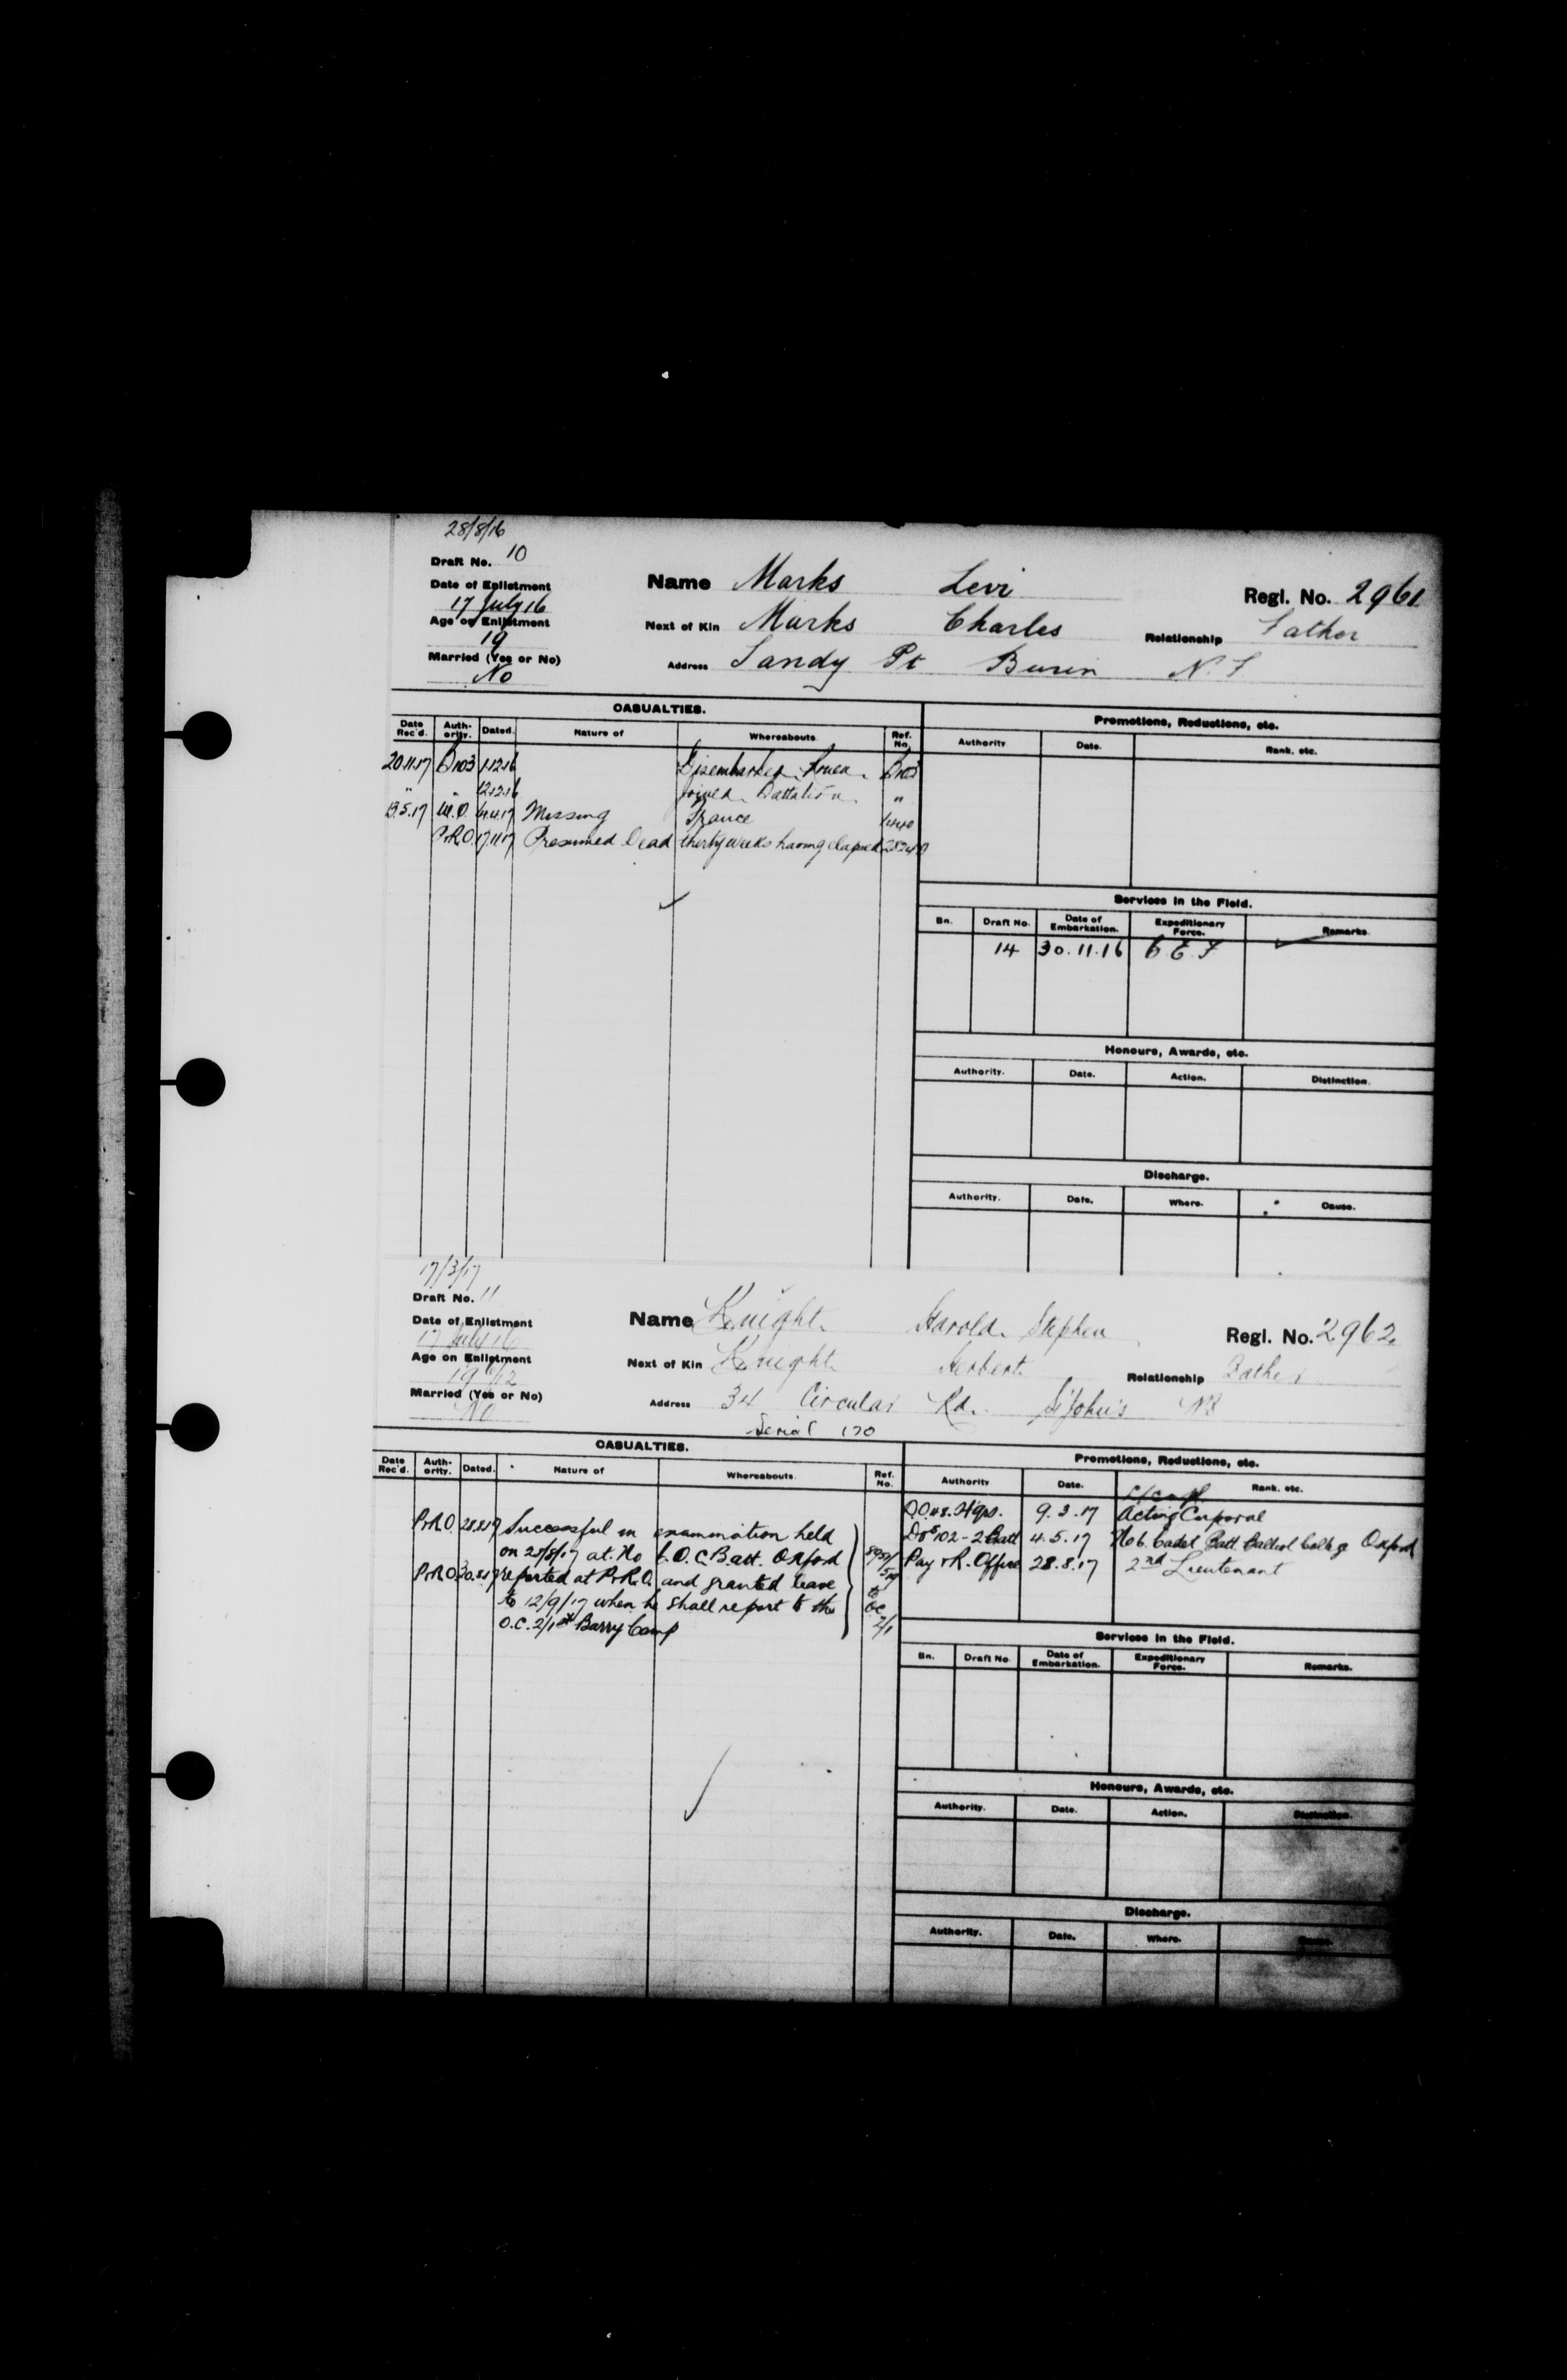 28/8/16
Draft No. 10
Date of Enlistment
17 July 16
Age on Enlistment
19
Married (Yes or No)
No
Name Marks Levi
Regl. No. 2961
Next of Kin Marks Charles
Relationship Father
Address Sandy Pt Burin N.F
CASUALTIES.
Date Rec'd. Auth- ority. Dated. Nature of Whereabouts Ref. No.
20.11.17 B103 1.12.16 Disembarked Rouen B103
" " 12.12.16 Joined Battalion "
13.5.17 W.O. 14.4.17 Missing France
P.R.O. 17.11.17 Presumed Dead thirty weeks having elapsed
Promotions, Reductions, etc.
Authority Date. Rank. etc.
Services in the Field.
Bn. Draft No. Date of Embarkation. Expeditionary Force. Remarks
14 30.11.16 B.E.F
Honours, Awards, etc.
Authority. Date. Action. Distinction.
Discharge.
Authority. Date. Where. Cause.
17/3/17
Draft No. 11
Date of Enlistment
17 July 16
Age on Enlistment
19 6/12
Married (Yes or No)
No
Name Knight Harold Stephen
Regl. No. 2962
Next of Kin Knight Herbert
Relationship Father
Address 34 Circular Rd. St John's NF
Serial 170
CASUALTIES.
Date Rec'd. Auth- ority. Dated. Nature of Whereabouts Ref. No.
P&R.O. 28.8.17 Successful in examination held
on 28/8/17 at No 6. O.C. Batt. Oxford
P&R.O. 30.8.17 reported at P&R.O. and granted leave
to 12/9/17 when he shall report to the
O.C. 2/1st Barry Camp
to
OC
2/1
Promotions, Reductions, etc.
Authority Date. Rank. etc.
L/Corpl
D.O. 48. Hqrs. 9.3.17 Acting Corporal
Dos 102-2 Batt 4.5.17 No 6. Cadet Batt Balliol College Oxford
Pay & R. Office 28.8.17 2nd Lieutenant
Services in the Field.
Bn. Draft No. Date of Embarkation. Expeditionary Force. Remarks.
Honours, Awards, etc.
Authority. Date. Action. Distinction.
Discharge.
Authority. Date. Where.